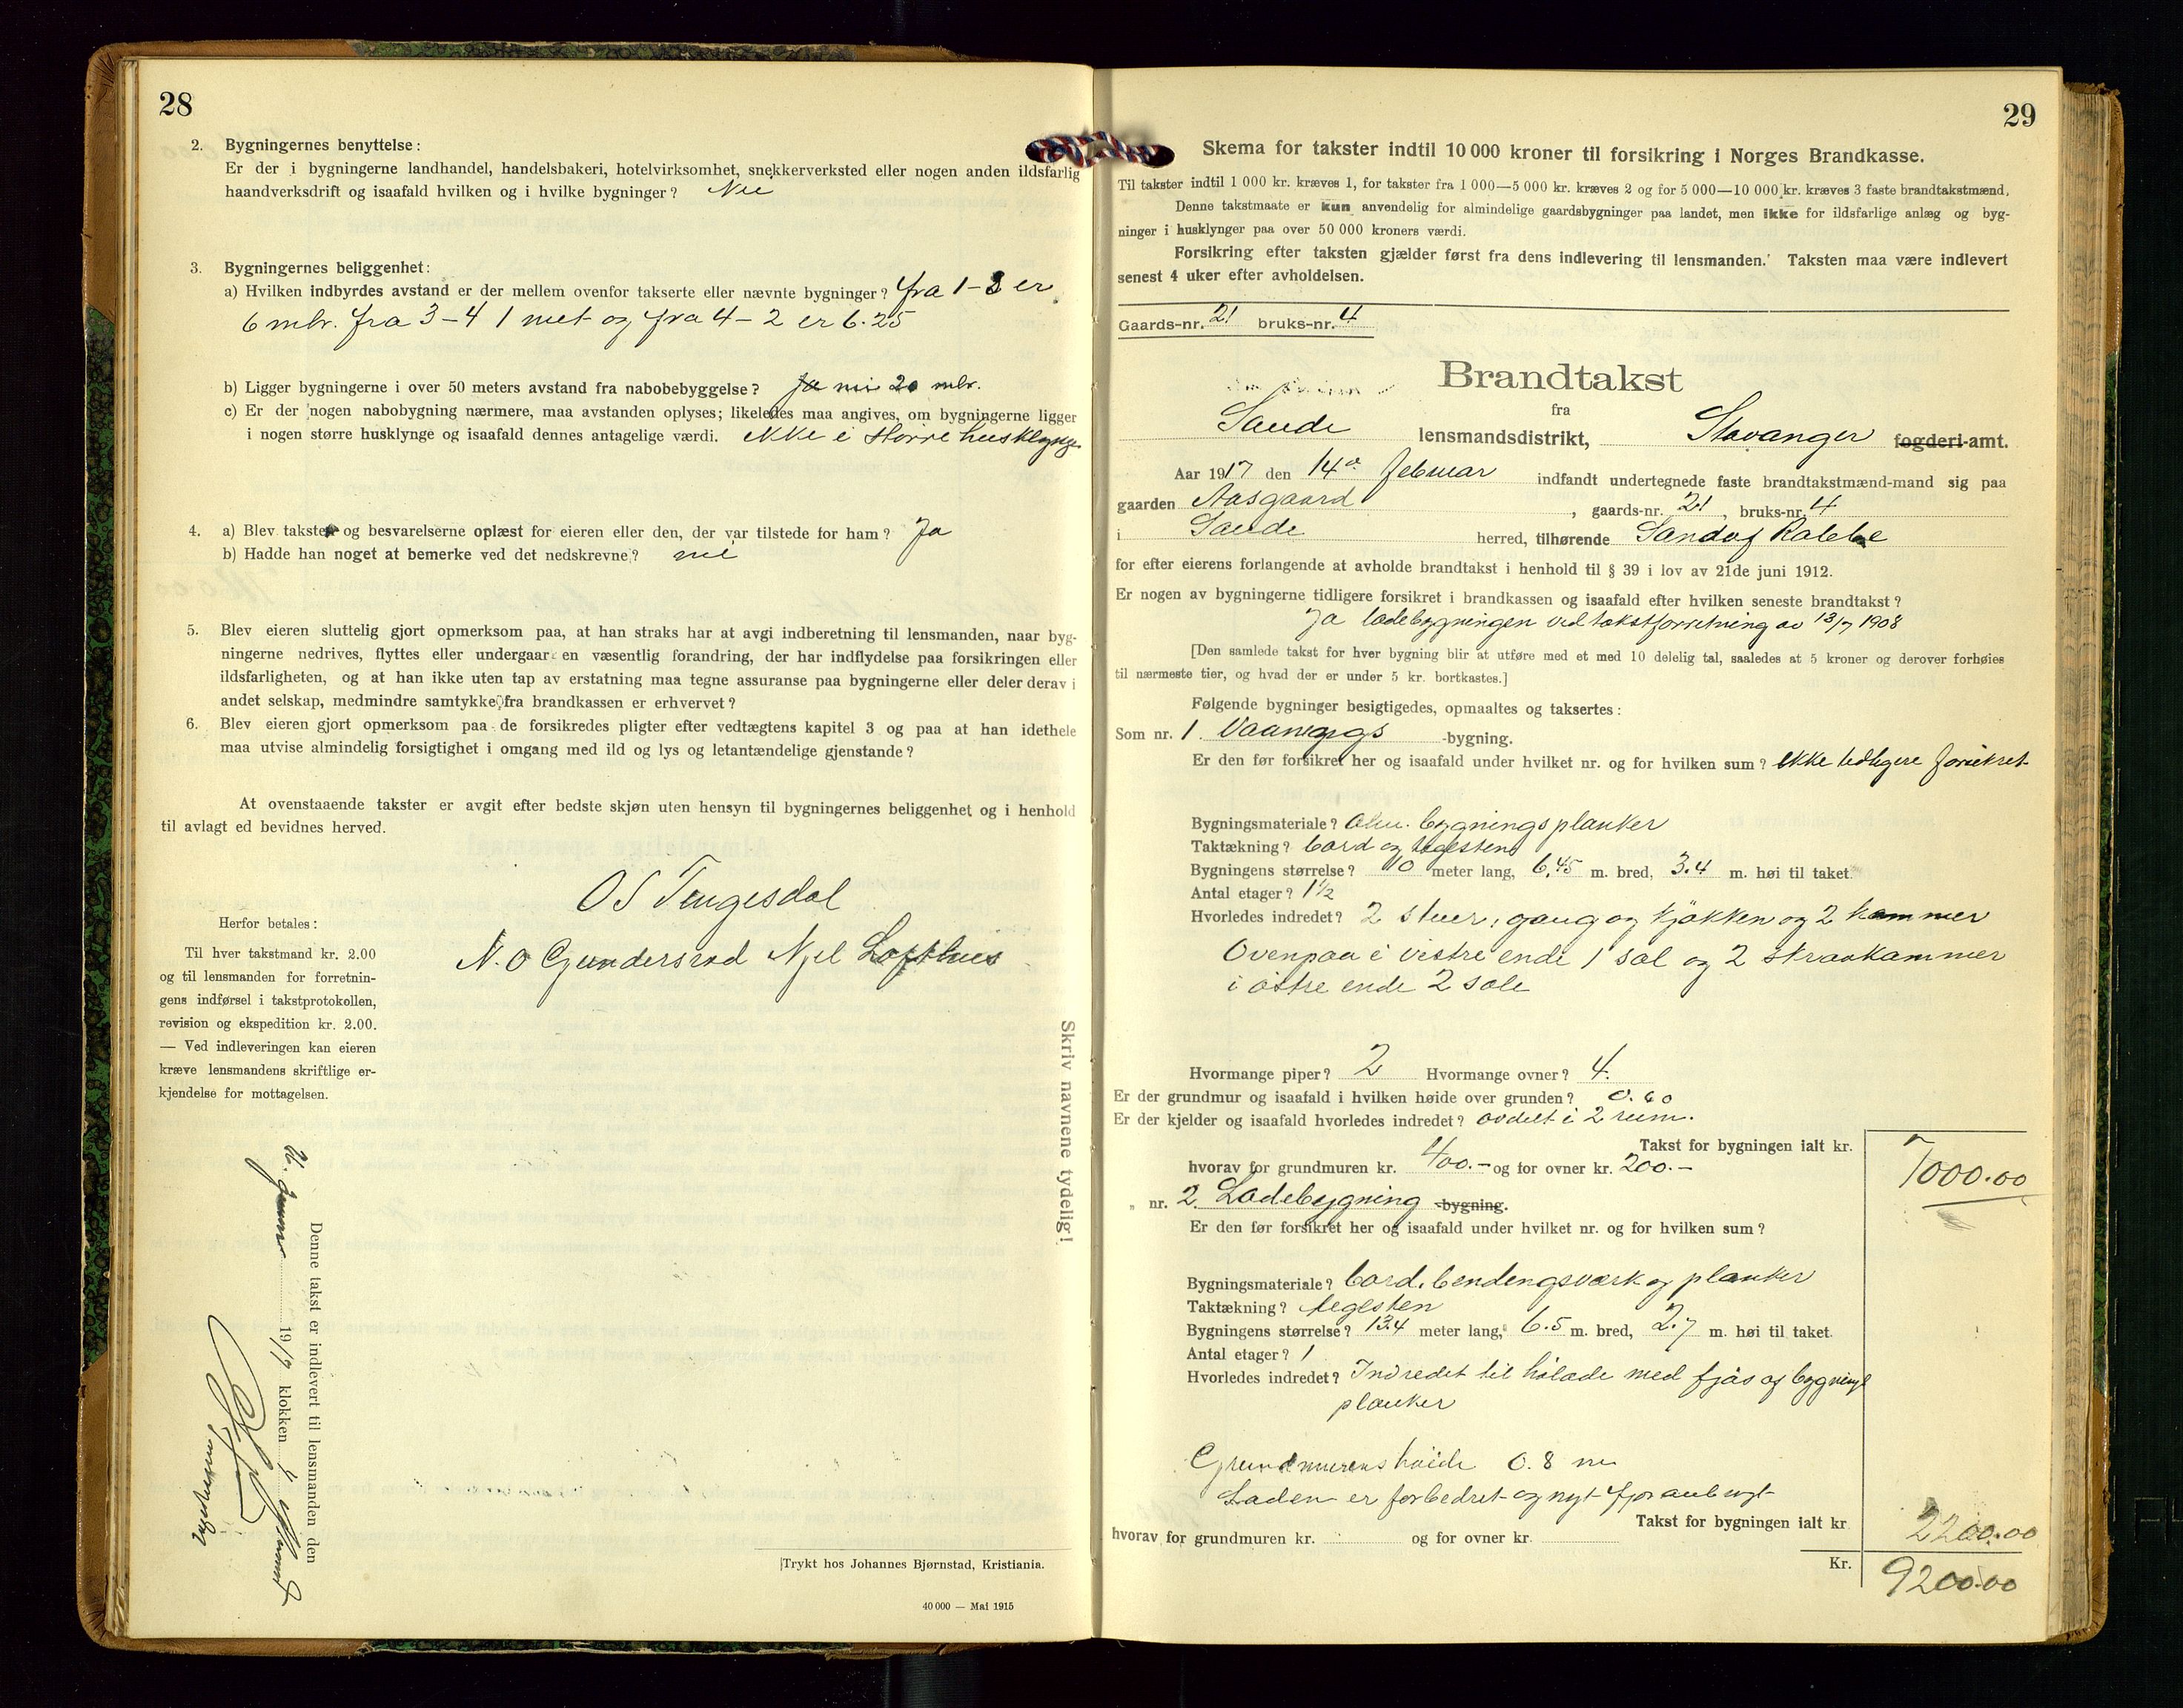 28
2. Bygningernes benyttelse:
Er der i bygningerne landhandel, handelsbakeri, hotelvirksomhet, snekkerverksted eller nogen anden ildsfarlig
haandverksdrift og isaafald hvilken og i hvilke bygninger? Nei
3. Bygningernes beliggenhet:
a) Hvilken indbyrdes avstand er der mellem ovenfor takserte eller nævnte bygninger? fra 1-3 er
6 mtr. fra 3-4 1 met og fra 4-2 er 6.25
b) Ligger bygningerne i over 50 meters avstand fra nabobebyggelse? Ja nei 20 mtr.
c) Er der nogen nabobygning nærmere, maa avstanden oplyses; likeledes maa angives, om bygningerne ligger
i nogen større husklynge og isaafald dennes antagelige værdi. ikke i större husklynge
4. a) Blev taksten og besvarelserne oplæst for eieren eller den, der var tilstede for ham? Ja
b) Hadde han noget at bemerke ved det nedskrevne? nei
5. Blev eieren sluttelig gjort opmerksom paa, at han straks har at avgi indberetning til lensmanden, naar byg-
ningerne nedrives, flyttes eller undergaar en væsentlig forandring, der har indflydelse paa forsikringen eller
ildsfarligheten, og at han ikke uten tap av erstatning maa tegne assuranse paa bygningerne eller deler derav i
andet selskap, medmindre samtykke fra brandkassen er erhvervet?
6. Blev eieren gjort opmerksom paa de forsikredes pligter efter vedtægtens kapitel 3 og paa at han idethele
maa utvise almindelig forsigtighet i omgang med ild og lys og letantændelige gjenstande?
At ovenstaaende takster er avgit efter bedste skjøn uten hensyn til bygningernes beliggenhet og i henhold
til avlagt ed bevidnes herved.
O S Tengesdal
N. O Gundersrød Njel Lofthus
Herfor betales:
Til hver takstmand kr. 2.00
og til lensmanden for forretnin-
gens indførsel i takstprotokollen,
revision og ekspedition kr. 2.00.
— Ved indleveringen kan eieren
kræve lensmandens skriftlige er-
kjendelse for mottagelsen.
Denne takst er indlevert til lensmanden den
1917 klokken 4
Skriv navnene tydelig!
Trykt hos Johannes Bjørnstad, Kristiania.
40 000 — Mai 1915
29
Skema for takster indtil 10 000 kroner til forsikring i Norges Brandkasse.
Til takster indtil 1 000 kr. kræves 1, for takster fra 1 000—5 000 kr. kræves 2 og for 5 000—10 000 kr. kræves 3 faste brandtakstmænd,
Denne takstmaate er kun anvendelig for almindelige gaardsbygninger paa landet, men ikke for ildsfarlige anlæg og byg-
ninger i husklynger paa over 50 000 kroners værdi.
Forsikring efter taksten gjælder først fra dens indlevering til lensmanden. Taksten maa være indlevert
senest 4 uker efter avholdelsen.
Gaards-nr. 21 bruks-nr. 4
Brandtakst
fra
Saude lensmandsdistrikt, Stavanger fogderi-amt.
Aar 1917 den 14de februar indfandt undertegnede faste brandtakstmænd-mand sig paa
gaarden Aasgaard, gaards-nr. 21, bruks-nr. 4
i Saude herred, tilhørende Sandøf Rabbe
for efter eierens forlangende at avholde brandtakst i henhold til § 39 i lov av 21de juni 1912.
Er nogen av bygningerne tidligere forsikret i brandkassen og isaafald efter hvilken seneste brandtakst?
Ja ladebygningen ved takstforretning av 13/7 1908
[Den samlede takst for hver bygning blir at utføre med et med 10 delelig tal, saaledes at 5 kroner og derover forhøies
til nærmeste tier, og hvad der er under 5 kr. bortkastes.]
Følgende bygninger besigtigedes, opmaaltes og taksertes:
Som nr. 1. Vaanings -bygning.
Er den før forsikret her og isaafald under hvilket nr. og for hvilken sum? ikke tidligere forsikret
Bygningsmateriale? alm. bygningsplanker
Taktækning? bord og tegelsten
Bygningens størrelse? 10 meter lang, 6,45 m. bred, 3.4 m. høi til taket.
Antal etager? 1½
Hvorledes indredet? 2 stuer, gang og kjøkken og 2 kammer
Ovenpaa i vestre ende 1 sal og 2 skraakammer
i østre ende 2 sale
Hvormange piper? 2 Hvormange ovner? 4.
Er der grundmur og isaafald i hvilken høide over grunden? 0.60
Er der kjelder og isaafald hvorledes indredet? avdelt i 2 rum.
Takst for bygningen ialt kr. 7000.00
hvorav for grundmuren kr. 400.- og for ovner kr. 200.-
„ nr. 2. Ladebygning -bygning.
Er den før forsikret her og isaafald under hvilket nr. og for hvilken sum?
Bygningsmateriale? bord. bendingsverk og planker
Taktækning? tegelsten
Bygningens størrelse? 13.4 meter lang, 6.5 m. bred, 2.7 m. høi til taket.
Antal etager? 1
Hvorledes indredet? Indredet til hølade med fjøs af bygnings
planker
Grundmurens høide 0.8 m
Laden er forbedret og nyt fjøs anbragt
Takst for bygningen ialt kr 2200.00
hvorav for grundmuren kr. og for ovner kr.
Kr. 9200.00